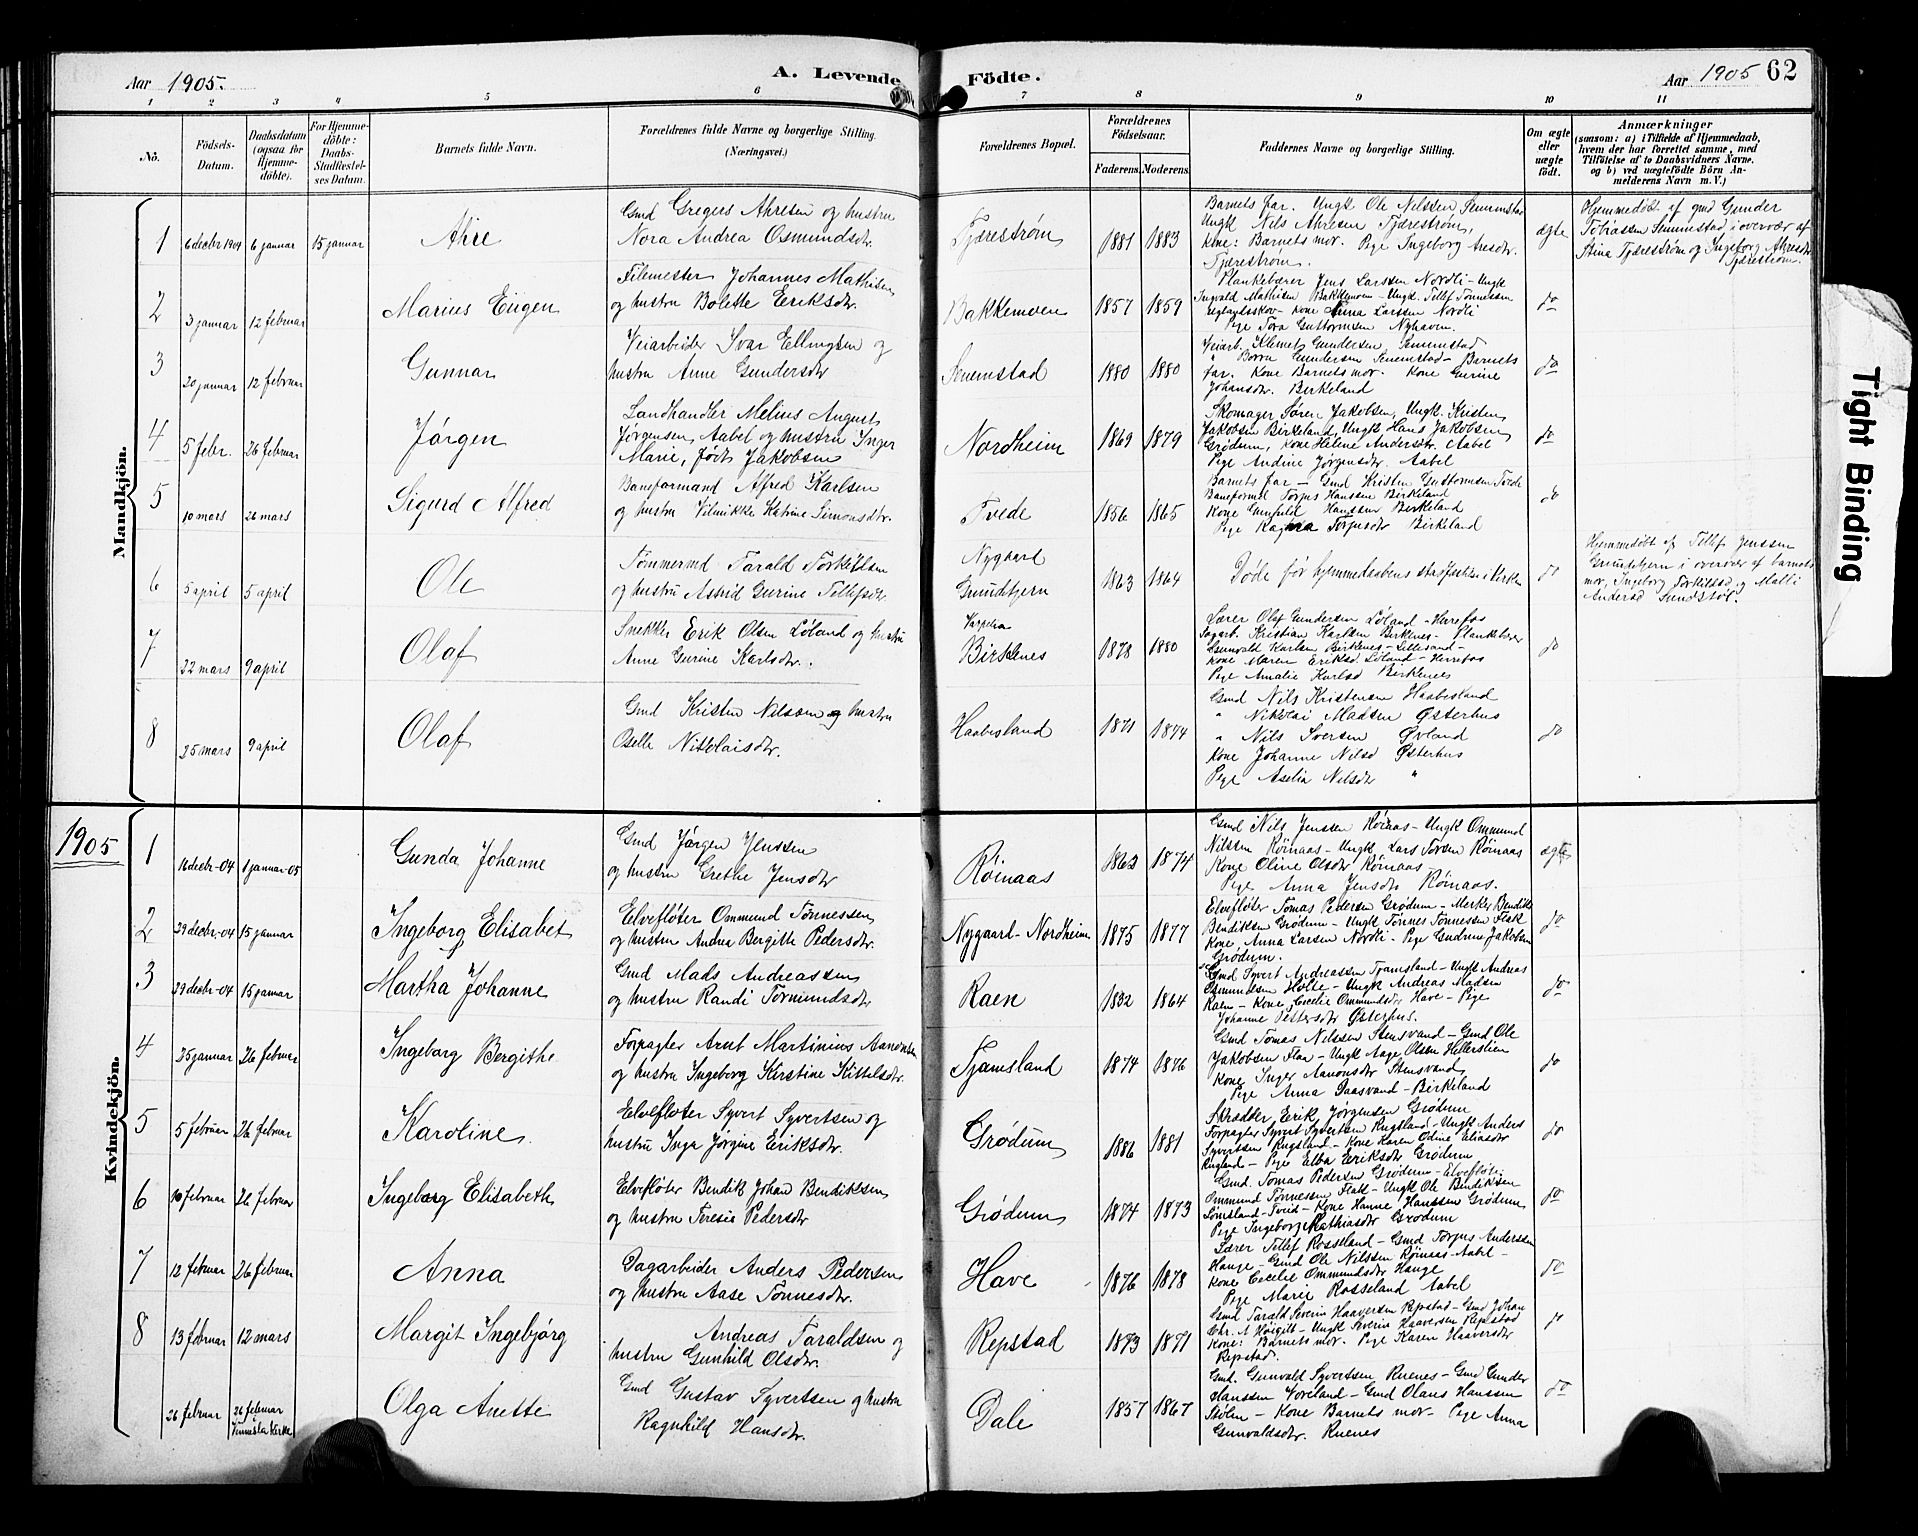 Aar 1905. A. Levende Födte. Aar 1905 62
1 2 3 4 5 6 7 8 9 10 11
No. Födsels-Datum. Daabsdatum (ogsaa for Hjemmedöbte). For Hjemmedöbte: Daabs-Stadfæstelses Datum. Barnets fulde Navn. Forældrenes fulde Navne og borgerlige Stilling. (Næringsvei.) Forældrenes Bopæl. Forældrenes Födselsaar. Faderens. Moderens. Faddernes Navne og borgerlige Stilling. Om ægte eller uægte födt. Anmærkninger (saasom: a) i Tilfælde af Hjemmedaab, hvem der har forrettet samme, med Tilföielse af to Daabsvidners Navne, og b) ved uægtefödte Börn Anmelderens Navn m. V.)
Mandkjön.
1 6 decbr 1904 6 januar 15 januar Ahre
Gmd Gregers Ahresen og hustru
Nora Andrea Osmundsdtr.
Tjærestrøm 1881 1883
Barnets far. Ungk Ole Nilssen Senumstad
Ungk Nils Ahresen Tjærestrøm,
Kone: Barnets mor. Pige Ingeborg Aresdtr.
Tjærestrøm.
ægte
Hjemmedøbt af gmd Gunder
Tobiassen Senumstad, i overvær af
Stina Tjærestrøm og Ingeborg Ahresdtr
Tjærestrøm.
2 3 januar 12 februar Marius Eügen
Filemester Johannes Mathisen
og hustru Bolette Eriksdtr.
Bakkemoen 1857 1859
Plankebærer Jens Larssen Nordli - Ungk
Ingvald Mathisen Bakkemoen - Ungk. Tellef Tønnessen
kone Anna Larssen Nordli
Pige Tora Guttormsen Nyhaven.
do
3 20 januar 12 februar Gunnar
Veiarbeider Ivar Ellingsen og
hustru Anne Gundersdtr
Senumstad 1880 1880
Veiarb. Klemet Gundersen, Senumstad
" Børre Gundersen Senumstad - Barnets
far. Kone Barnets mor. Kone Gurine
Johansdtr. Birkeland
do
4 5 febr. 26 februar Jørgen
Landhandler Melius August
Jørgensen Aabel og hustru Inger
Marie, født Jakobsen
Nordheim 1869 1879
Skomager Søren Jakobsen, Ungk. Kristen
Jakobsen Birkeland, Ungk Hans Jakobsen
Grødum, Kone Helene Andersdtr. Aabel
Pige Andine Jørgensdtr. Aabel
do
5 10 mars 26 mars Sigurd Alfred
Baneformand Alfred Karlsen
og hustru Vilmikke Katrine Simonsdtr.
Tvede 1856 1865
Barnets far - Gmd Kristen Guttormsen Tvede
Baneformd Torjus Hanssen Birkeland
Kone Gunhild Hanssen Birkeland
Pige Ragna Torjusdtr Birkeland
do
6 5 april 5 april Ole
Tømmermd Tarald Torkelsen
og hustru Astrid Gurine Tellefsdtr.
Nygaard
Grundtjern 1863 1864
Døde før hjemmedaabens stadfæstelse i kirken
do
Hjemmedøbt af Tellef Jenssen
Grundtjern i overvær af barnets
mor, Ingeborg Torkilsd og Malli
Andersd Sundstøl.
7 22 mars 9 april Olaf
Snekker Erik Olsen Løland og hustru
Anne Gurine Karlsdtr.
Birkenes 1878 1880
Lærer Olaf Gundersen Løland - Herefos
Sagarb. Kristian Karlsen Birkenes - Plankebærer
Gunvald Karlsen Birkenes - Lillesand -
Kone Maren Eriksd Løland - Herrefos
Pige Amalie Karlsd Birkenes
do
8 25 mars 9 april Olaf
Gmd Kristen Nilssen og hustru
Oselle Nikolaisdtr.
Haabesland 1871 1874
Gmd Nils Kristensen Haabesland
" Nikolai Madsen Østerhus
" Nils Iversen Øvland
Kone Johanne Nilsd Østerhus
Pige Aselia Nilsdtr "
do
1905
Kvindekjön.
1 16 decbr-04 1 januar-05 Gunda Johanne
Gmd Jørgen Jenssen
og hustru Grethe Jensdtr
Røinaas 1862 1874
Gmd Nils Jenssen Røinaas - Ungk Ommund
Nilssen Røinaas - Ungk. Lars Torsen Røinaas
Kone Oline Olsdtr Røinaas
Pige Anna Jensdtr Røinaas.
ægte
2 29 decbr-04 15 januar Ingeborg Elisabet
Elvefløter Ommund Tønnessen
og hustru Andrea Bergitte Pedersdtr.
Nygaard-Nordheim 1875 1877
Elvefløter Tomas Pedersen Grødum - Merker Bendik
Bendiksen Grødum - Ungk Tønnes Tønnessen Flak
Kone Anna Larsen Nordli - Pige Gudrun Jakobsen
Grødum.
do
3 29 decbr-04 15 januar Martha Johanne
Gmd Mads Andreassen
og hustru Randi Tormundsdtr
Raen 1832 1864
Gmd Syvert Andreassen Tjamsland - Ungk Andreas
Osmundsen Holle - Ungk Andreas Madsen
Raen - Kone Cecelie Ommundsdtr Have - Pige
Johanne Pettersdtr Østerhus.
do
4 25 januar 26 februar Ingeborg Bergithe
Forpagter Arnt Martinius Aanonsen
og hustru Ingeborg Kirstine Kittelsdtr.
Tjamsland 1874 1876
Gmd Tomas Nilssen Stensvand - Gmd Ole
Jakobsen Flaa - Ungk Aage Olsen Hellerslien
Kone Inger Aanonsdtr Stensvand
Pige Anna Daasvand - Birkeland
do
5 5 februar 26 februar Karoline
Elvefløter Syvert Syvertsen og
hustru Inga Jørgine Eriksdtr.
Grødum 1886 1881
Skrædder Erik Jørgensen Grødum
Forpagter Syvert Syvertsen Rugsland - Ungk Anders
Syvertsen Rugsland - Kone Karen Odine Eliasdtr
Rugland - Pige Elba Eriksdtr Grødum
do
6 10 februar 26 februar Ingeborg Elisabeth
Elvefløter Bendik Johan Bendiksen
og hustru Teresie Pedersdtr
Grødum 1874 1873
Gmd. Tomas Pedersen Grødum - Elvefløter
Ommund Tønnessen Flak - Ungk Ole Bendiksen
Lømsland - Tveit - Kone Hanne Hanssen Grødum
Pige Ingeborg Mathiasdtr Grødum
do
7 12 februar 26 februar Anna
Dagarbeider Anders Pedersen
og hustru Aase Tønnesdtr.
Have 1876 1878
Lærer Tellef Rosseland - Gmd Torjus Anderssen
Hauge - Gmd Ole Nilssen Røinaas - Aabel -
Kone Cecelie Ommundsdtr Hauge
Pige Marie Rosseland Aabel
do
8 13 februar 12 mars Margit Ingebjørg
Andreas Taraldsen og
hustru Gunhild Olsdtr.
Repstad 1873 1871
Gmd Tarald Severin Haaversen Repstad - Gmd Johan
Chr. A Høigilt - Ungk Severin Haaversen Repstad
Kone: Barnets mor. Pige Karen Haaversdtr
Repstad.
do
26 februar 26 februar Vennesla Kirke Olga Anette
Gmd Gustav Syvertsen og hustru
Ragnhild Hansdtr.
Dale 1857 1867
Gmd. Gunvald Syvertsen Ruenes - Gmd Gunder
Hanssen Voreland - Gmd Olaus Hanssen
Stølen - Kone Barnets mor - Pige Anna
Gunvaldsdtr. Ruenes
do
Tight Binding